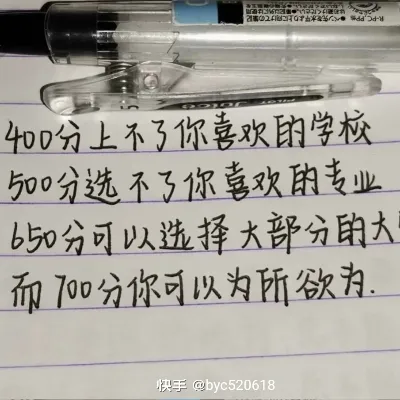 R-PC, PP他
Juice
400分上不了你喜欢的学校
500分选不了你喜欢的专业
650分可以选择大部分的大
而700分你可以为所欲为.
快手 @byc520618